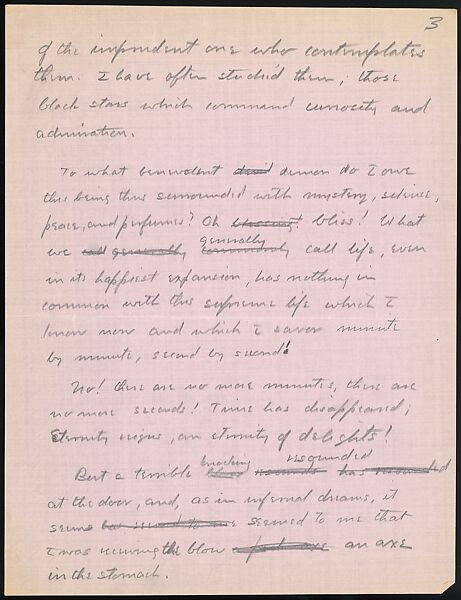 3
of the impudent one who contemplates
them. I have often studied them, those
black stars which command curiosity and
admiration.
To what benevolent devil demon do I owe
this being thus surrounded with mystery, silence,
peace, and perfumes? Oh blessing! bliss! What
generally
we call generally commonly call life, even
in its happiest expansion, has nothing in
common with this supreme life which I
know now and which I savor minute
by minute, second by second!
No! there are no more minutes, there are
no more seconds! Time has disappeared;
Eternity reigns, an eternity of delights!
knocking resounded
But a terrible blow resounds has resounded
at the door, and, as in infernal dreams, it
seems seemed to me that
I was receiving the blow of an axe an axe
in the stomach.